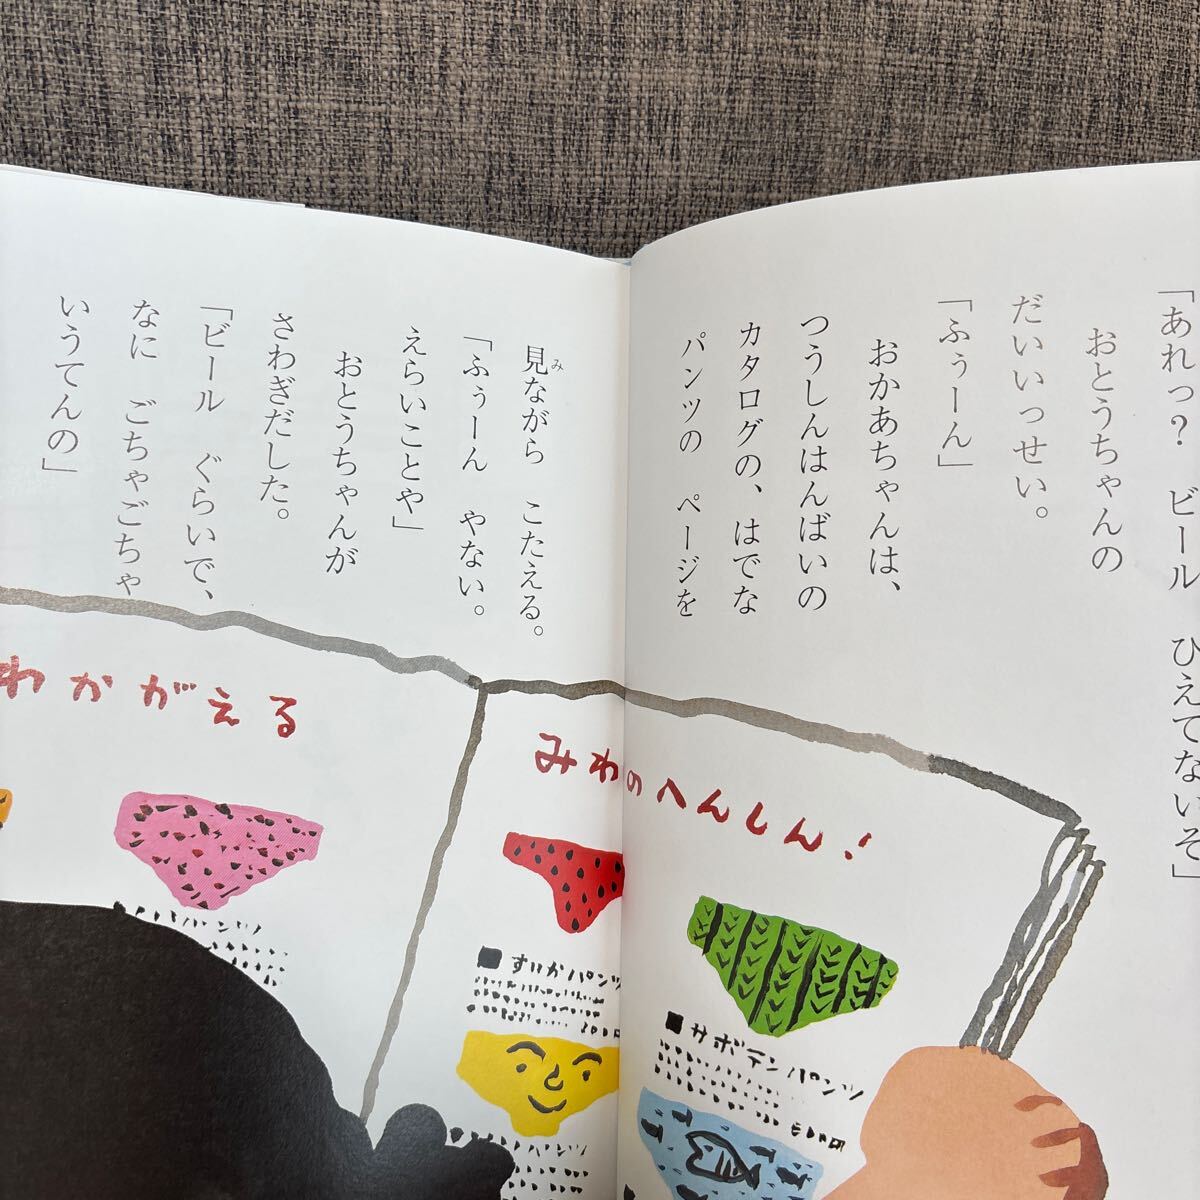 「あれっ？　ビール　ひえてないぞ」
おとうちゃんの
だいいっせい。
「ふぅーん」
おかあちゃんは、
つうしんはんばいの
カタログの、はでな
パンツの　ページを
見ながら　こたえる。
み
「ふぅーん　やない。
えらいことや」
おとうちゃんが
さわぎだした。
「ビール　ぐらいで、
なに　ごちゃごちゃ
いうてんの」
みわのへんしん！
わかがえる
すいかパンツ
サボテンパンツ
パンツ
パンツ